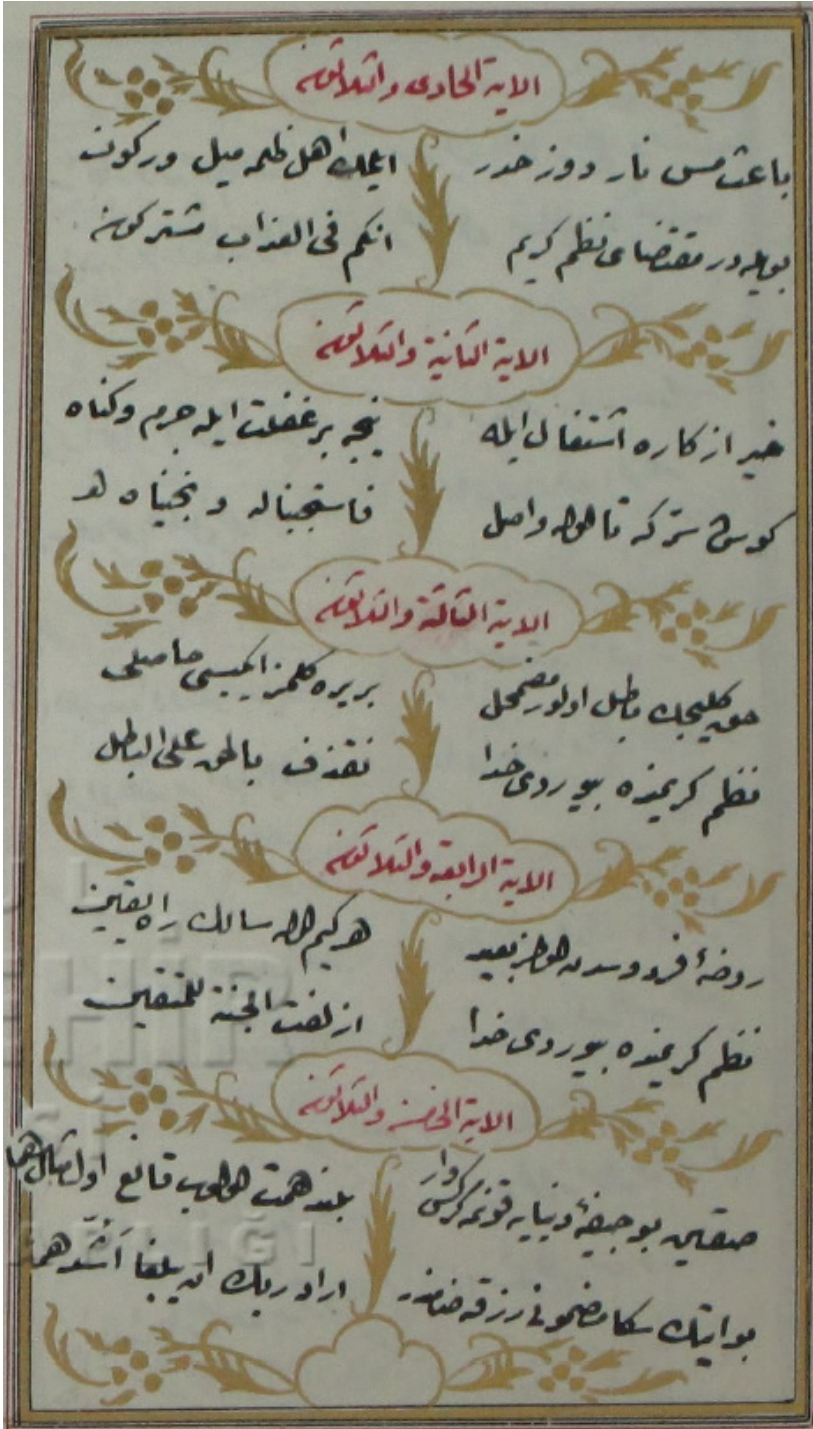 الاية الحادى والثلاثون
باعث مس نار دوزخدر ايلمك اهل ظلمه ميل وركون
بويله در مقتضاى نظم كريم انكم فى العذاب مشتركون
الاية الثانية والثلاثون
خير از كاره اشتغال ايله نيجه بر غفلت ايله جرم وكناه
كوش ستركه تا اوله واصل فاستجبناله ونجيناه هو
الاية الثالثة والثلاثون
حق كليجك باطل اولور مضمحل بر يره كلمز ايكيسى حاصلى
نظم كريمنده بيوردى خدا نقذف بالحق على الباطل
الاية الرابعة والثلاثون
روضۀ فردوسدن اولمز بعيد هركيم اوله سالك راه يقين
نظم كريمنده بيوردى خدا ازلفت الجنة للمتقين
الاية الخامسة والثلاثون
صقين بو جيفۀ دنيايه قونمه كركس وار بلند همت اولوب قانع اول مثال هما
بو ايتك سكا مضمونى رزقه ضامندر اراد ربك ان يبلغا اشدهما